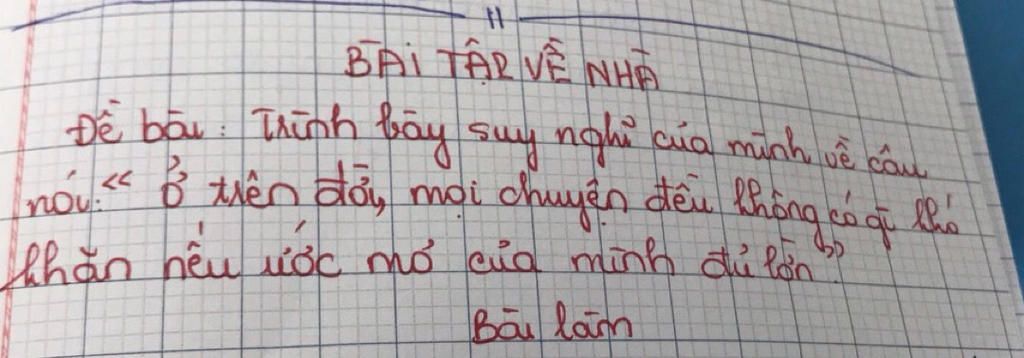 BÀI TẬP VỀ NHÀ
Đề bài: Trình bày suy nghĩ của mình về câu
nói: “Ở trên đời, mọi chuyện đều không có gì khó
khăn nếu ước mơ của mình đủ lớn”
Bài làm